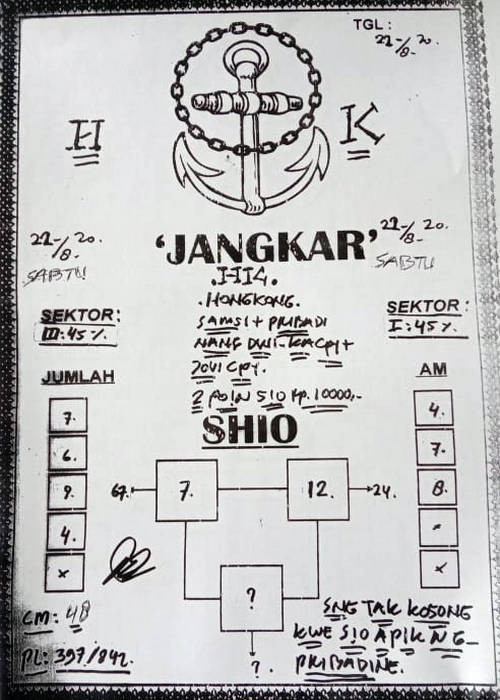 TGL :
22-/8-20.
H K
22-/8-20.
SABTU
'JANGKAR'
22-/8-20.
SABTU
.HK.
.HONGKONG.
SEKTOR:
III:45%.
SEKTOR :
I:45%.
JUMLAH
7.
6.
9.
4.
x
AM
4.
7.
8.
-
x
2 POIN SIO Rp.10000,-
SHIO
67. 7. 12. 24.
?
?.
CM: 48
PL: 397/842.
SNG TAK KOSONG
KWE SIO APIK NG-
PRIBADINE.